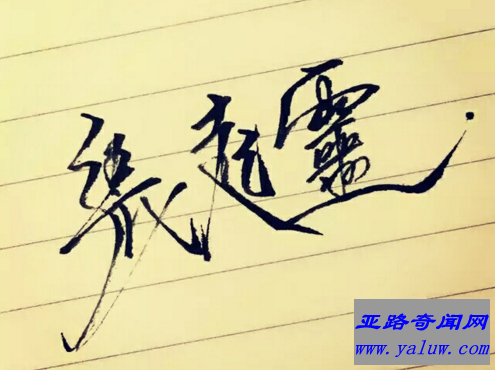 張起靈
亚路奇闻网
www.yaluw.com